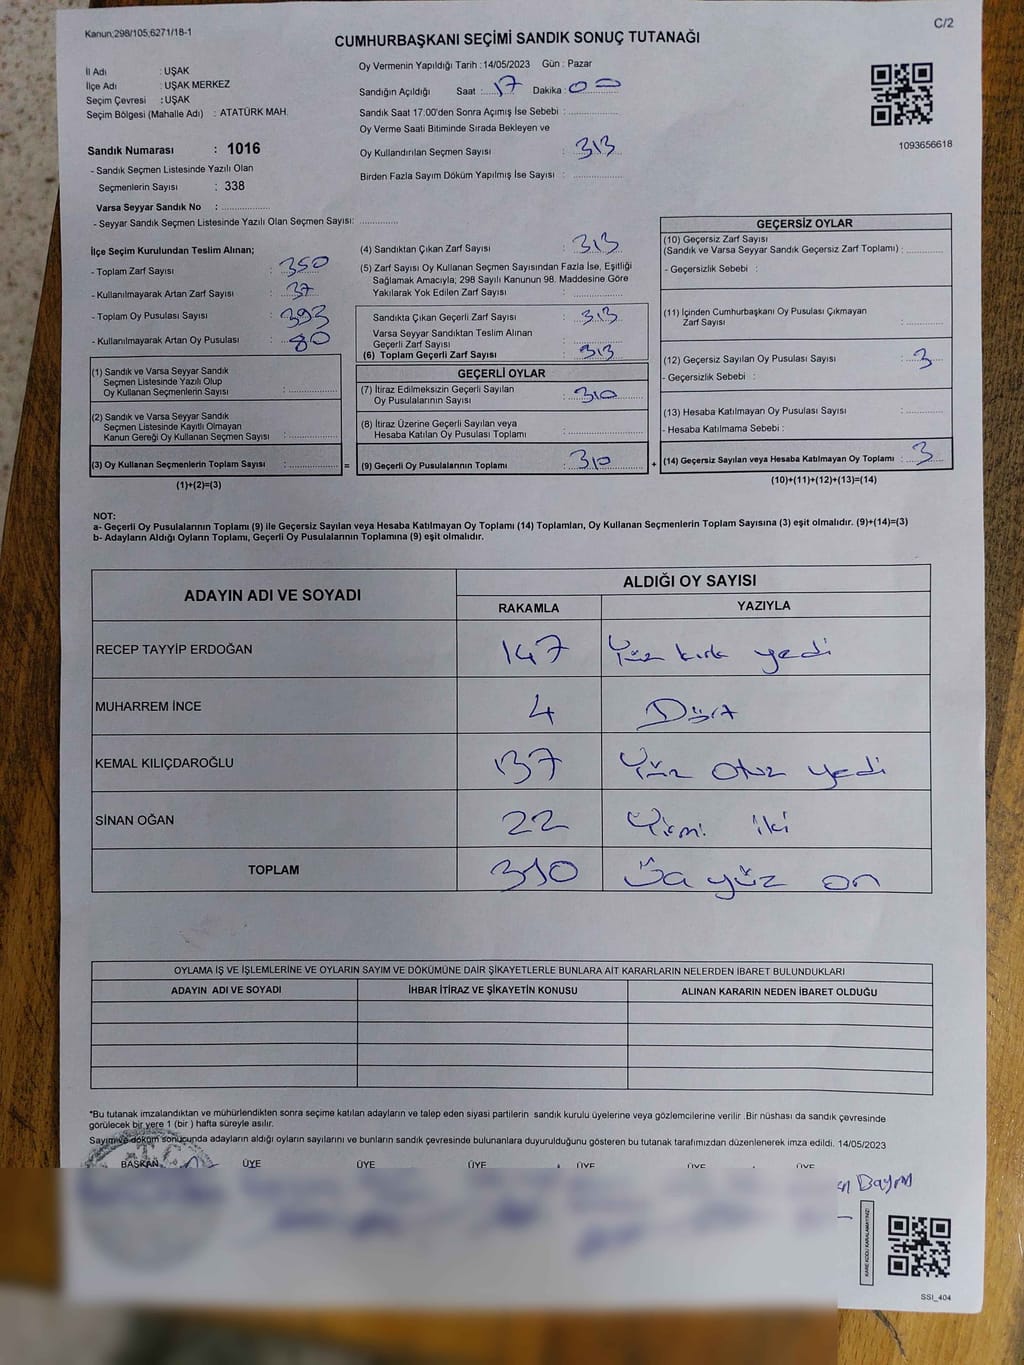 Kanun;298/105,6271/18-1
C/2
CUMHURBAŞKANI SEÇİMİ SANDIK SONUÇ TUTANAĞI
İl Adı : UŞAK
İlçe Adı : UŞAK MERKEZ
Seçim Çevresi : UŞAK
Seçim Bölgesi (Mahalle Adı) : ATATÜRK MAH.
Sandık Numarası : 1016
- Sandık Seçmen Listesinde Yazılı Olan
Seçmenlerin Sayısı : 338
Varsa Seyyar Sandık No :
- Seyyar Sandık Seçmen Listesinde Yazılı Olan Seçmen Sayısı:
Oy Vermenin Yapıldığı Tarih : 14/05/2023 Gün : Pazar
Sandığın Açıldığı Saat : 17 Dakika : 00
Sandık Saat 17:00'den Sonra Açımış İse Sebebi :
Oy Verme Saati Bitiminde Sırada Bekleyen ve
Oy Kullandırılan Seçmen Sayısı : 313
Birden Fazla Sayım Döküm Yapılmış İse Sayısı :
1093656618
İlçe Seçim Kurulundan Teslim Alınan;
- Toplam Zarf Sayısı : 350
- Kullanılmayarak Artan Zarf Sayısı : 37
- Toplam Oy Pusulası Sayısı : 393
- Kullanılmayarak Artan Oy Pusulası : 80
(1) Sandık ve Varsa Seyyar Sandık
Seçmen Listesinde Yazılı Olup
Oy Kullanan Seçmenlerin Sayısı :
(2) Sandık ve Varsa Seyyar Sandık
Seçmen Listesinde Kayıtlı Olmayan
Kanun Gereği Oy Kullanan Seçmen Sayısı :
(3) Oy Kullanan Seçmenlerin Toplam Sayısı : =
(1)+(2)=(3)
(4) Sandıktan Çıkan Zarf Sayısı : 313
(5) Zarf Sayısı Oy Kullanan Seçmen Sayısından Fazla İse, Eşitliği
Sağlamak Amacıyla; 298 Sayılı Kanunun 98. Maddesine Göre
Yakılarak Yok Edilen Zarf Sayısı :
Sandıkta Çıkan Geçerli Zarf Sayısı : 313
Varsa Seyyar Sandıktan Teslim Alınan
Geçerli Zarf Sayısı :
(6) Toplam Geçerli Zarf Sayısı : 313
GEÇERLİ OYLAR
(7) İtiraz Edilmeksizin Geçerli Sayılan
Oy Pusulalarının Sayısı : 310
(8) İtiraz Üzerine Geçerli Sayılan veya
Hesaba Katılan Oy Pusulası Toplamı :
(9) Geçerli Oy Pusulalarının Toplamı : 310 +
GEÇERSİZ OYLAR
(10) Geçersiz Zarf Sayısı
(Sandık ve Varsa Seyyar Sandık Geçersiz Zarf Toplamı) :
- Geçersizlik Sebebi :
(11) İçinden Cumhurbaşkanı Oy Pusulası Çıkmayan
Zarf Sayısı :
(12) Geçersiz Sayılan Oy Pusulası Sayısı : 3
- Geçersizlik Sebebi :
(13) Hesaba Katılmayan Oy Pusulası Sayısı :
- Hesaba Katılmama Sebebi :
(14) Geçersiz Sayılan veya Hesaba Katılmayan Oy Toplamı : 3
(10)+(11)+(12)+(13)=(14)
NOT:
a- Geçerli Oy Pusulalarının Toplamı (9) ile Geçersiz Sayılan veya Hesaba Katılmayan Oy Toplamı (14) Toplamları, Oy Kullanan Seçmenlerin Toplam Sayısına (3) eşit olmalıdır. (9)+(14)=(3)
b- Adayların Aldığı Oyların Toplamı, Geçerli Oy Pusulalarının Toplamına (9) eşit olmalıdır.
ADAYIN ADI VE SOYADI
ALDIĞI OY SAYISI
RAKAMLA YAZIYLA
RECEP TAYYİP ERDOĞAN 147 Yüz kırk yedi
MUHARREM İNCE 4 Dört
KEMAL KILIÇDAROĞLU 137 Yüz Otuz yedi
SİNAN OĞAN 22 Yirmi iki
TOPLAM 310 Üç yüz on
OYLAMA İŞ VE İŞLEMLERİNE VE OYLARIN SAYIM VE DÖKÜMÜNE DAİR ŞİKAYETLERLE BUNLARA AİT KARARLARIN NELERDEN İBARET BULUNDUKLARI
ADAYIN ADI VE SOYADI İHBAR İTİRAZ VE ŞİKAYETİN KONUSU ALINAN KARARIN NEDEN İBARET OLDUĞU
*Bu tutanak imzalandıktan ve mühürlendikten sonra seçime katılan adayların ve talep eden siyasi partilerin sandık kurulu üyelerine veya gözlemcilerine verilir .Bir nüshası da sandık çevresinde
görülecek bir yere 1 (bir ) hafta süreyle asılır.
Sayım ve döküm sonucunda adayların aldığı oyların sayılarını ve bunların sandık çevresinde bulunanlara duyurulduğunu gösteren bu tutanak tarafımızdan düzenlenerek imza edildi. 14/05/2023
BAŞKAN ÜYE ÜYE ÜYE ÜYE ÜYE ÜYE
KARE KODU KARALAMAYINIZ!
SSI_404